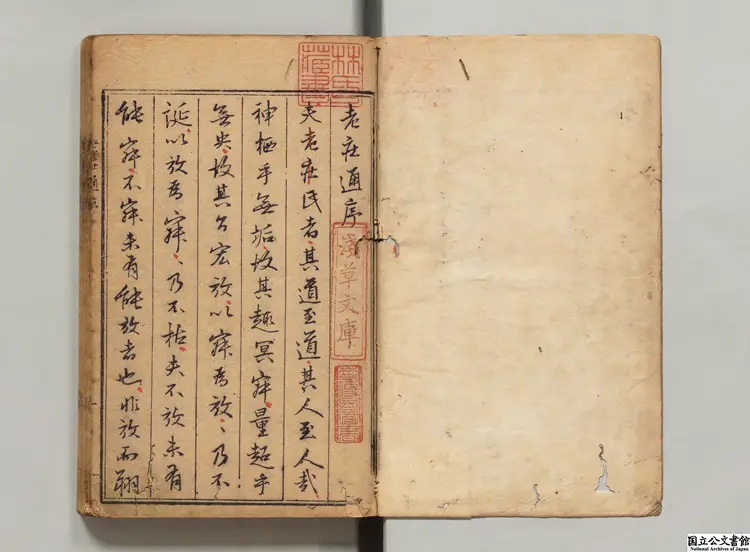 老莊通序
夫老莊氏者其道至道其人至人哉
神栖乎無垢故其趣冥寂量超乎
無央故其旨宏放以寂為放〻乃不
誕以放為寂〻乃不枯夫不放未有
能寂不寂未有能放者也非放而翱
林氏
藏書
淺草文庫
1
国立公文書館
National Archives of Japan